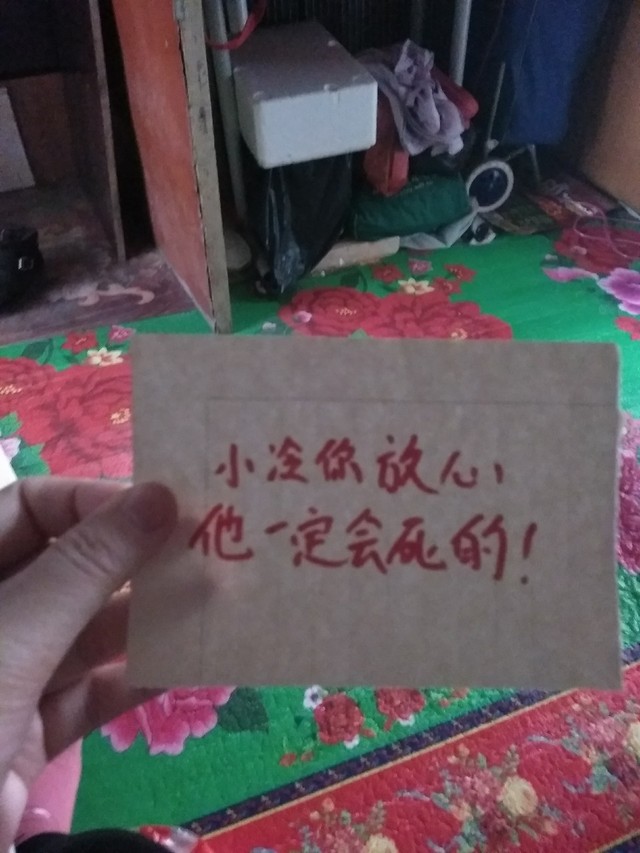 小冷你放心、
他一定会死的!